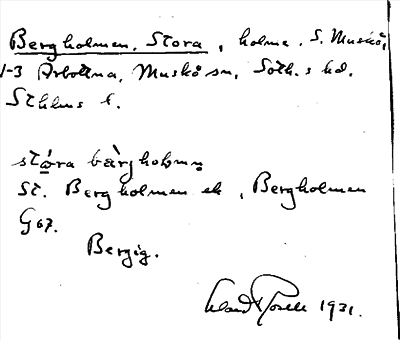 Bergholmen, Stora, holme, S. Muskö,
1-3 Arbottna, Muskö sn, Soth.s hd.
Sthlms l.
stóra bàrgholmɐn
St. Bergholmen ek, Bergholmen
G67.
Bergig.
1931.